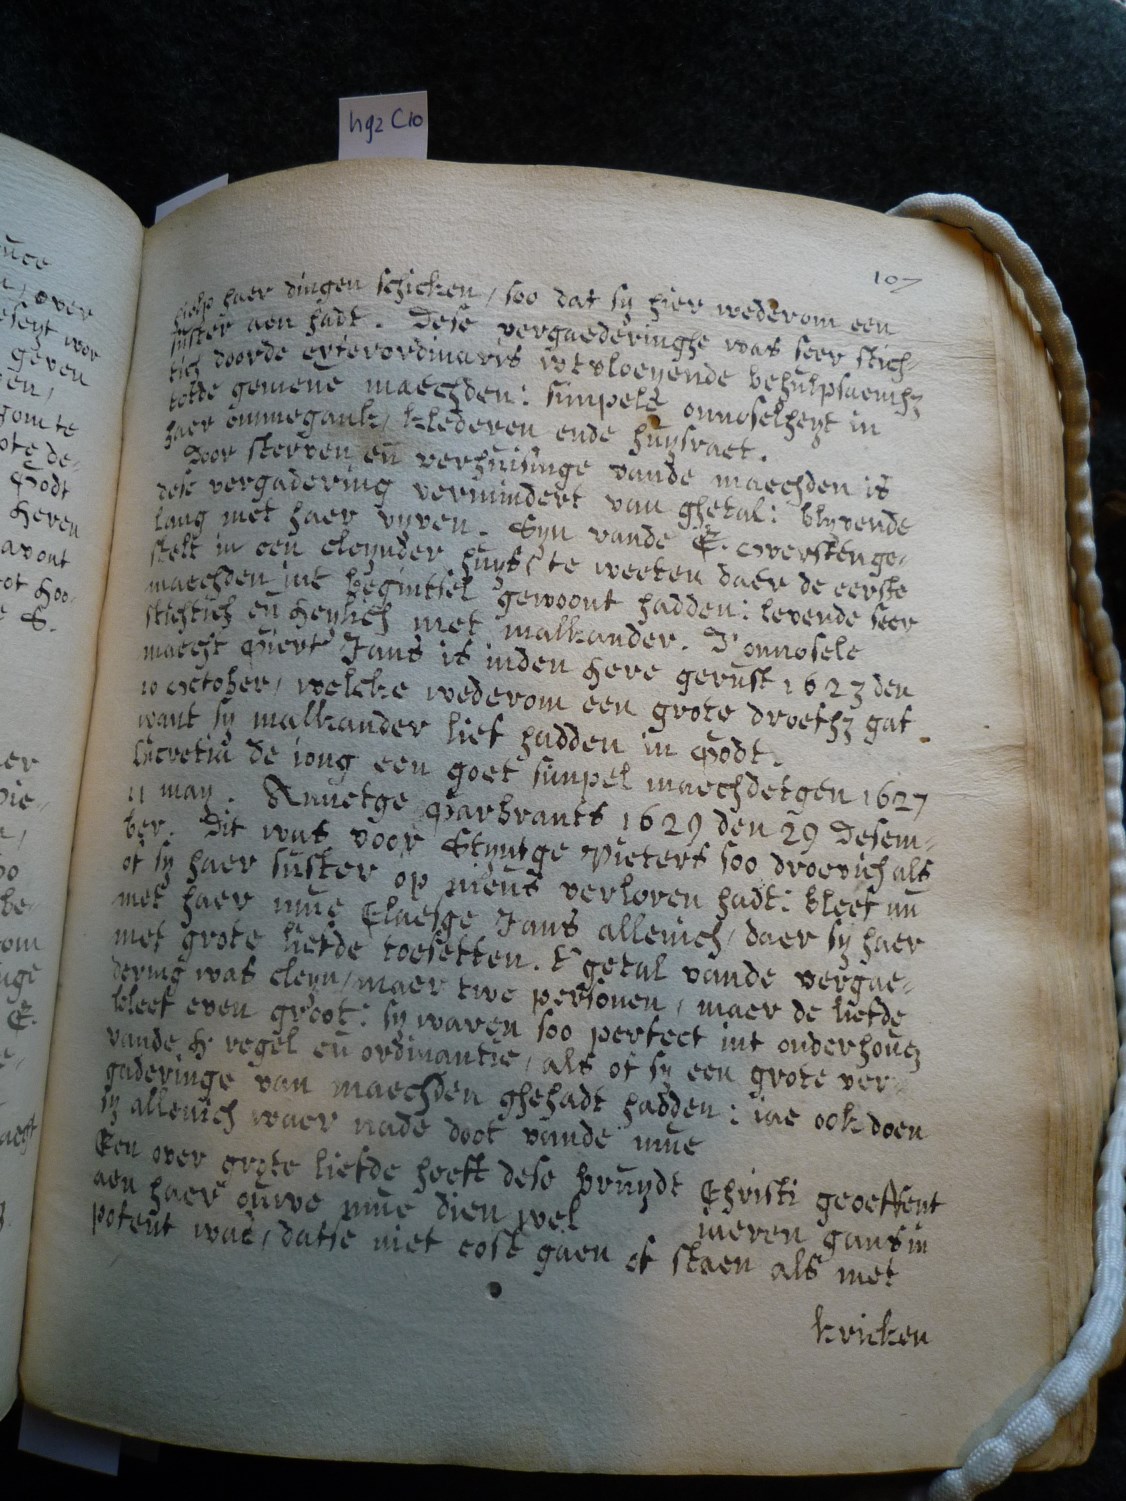 hgz C10
107
hielp haer dingen schicken, soo dat sy hier wederom een
suster aen hadt. Dese vergaederinghe was seer stich-
tich doorde exterordinaris wtvloeyende behulpsaemhz
totde gemene maechden: simpele onnoselheyt in
haer ommegank, klederen ende huysraet.
Door sterven en verhuisinge vande maechden is
dese vergadering vermindert van ghetal: blyvende
lang met haer vyven. Syn vande E. oversten ge-
stelt in een cleynder huys (te weeten daer de eerste
maechden int beginttsel gewoont hadden: levende seer
stichtich en heylich met malkander. D'onnosele
maecht Giert Jans is inden here gerust 1623 den
10 october, welcke wederom een grote droefhz gaf.
want sy malkander lief hadden in Godt.
Lucretia de iong een goet simpel maechdetgen 1627
11 may. Annetge Garbrants 1629 den 29 Desem-
ber. Dit was voor Styntge Pieters soo droevich als
of sy haer suster op nieus verloren hadt: bleef nu
met haer nine Claesge Jans allenich, daer sy haer
met grote liefde toesetten. T'getal vande vergae-
dering was cleyn, maer twe personen, maer de liefde
bleef even groot: sy waren soo perfect int onderhoutz
vande H regel en ordinantie, als of sy een grote ver-
gaderinge van maechden ghehadt hadden: iae ook doen
sy allenich waer nade doot vande nine
Een over grote liefde heeft dese bruydt Christi geoeffent
aen haer ouwe nine dien wel iaeren gans in
potent was, datse niet cost gaen of staen als met
kricken